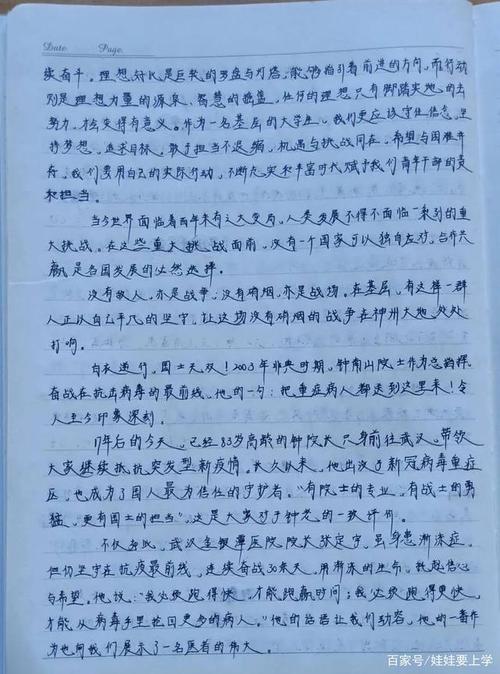 Date.    Page.
续奋斗。理想好比是巨轮的罗盘与灯塔,能够指引着前进的方向,而行动
则是理想力量的源泉、智慧的摇篮,任何理想只有脚踏实地的去
努力,才会变得有意义。作为一名基层的大学生,我们更应该守住信念,坚
持梦想,追求目标,敢于担当不退缩,机遇与挑战同在,希望与困难并
存,我们要用自己的实际行动,不断充实和丰富时代赋于我们青年干部的责
和担当。
当今世界面临着百年未有之大变局,人类发展不得不面临一系列的重
大挑战。在这些重大挑战面前,没有一个国家可以独自应对,合作共
赢是各国发展的必然选择。
没有敌人,亦是战争,没有硝烟,亦是战场。在基层,有这样一群
人正以自己平凡的坚守,让这场没有硝烟的战争在神州大地处处
打响。
白衣逆行,国士无双!2003年非典时期,钟南山院士作为总指挥
奋战在抗击病毒的最前线,他的一句:把重症病人都送到这里来!令
人至今印象深刻。
17年后的今天,已经83岁高龄的钟院长只身前往武汉,带领
大家继续抵抗突发型新疫情。长久以来,他出没于新冠病毒重症
区,也成为了国人最为信任的守护者。“有院士的专业,有战士的勇
猛,更有国士的担当”,这是大家对于钟老的一致评价。
不仅如此,武汉金银潭医院院长张定宇,虽身患渐冻症,
但仍坚守在抗疫最前线,连续奋战30余天,用渐冻的生命,托起信心
与希望。他说:“我必须跑得快,才能跑赢时间;我必须跑得更快,
才能从病毒手里抢回更多的病人。”他的话语让我们动容,他的一番作
为也向我们展示了一名医者的伟大。
百家号/娃娃要上学